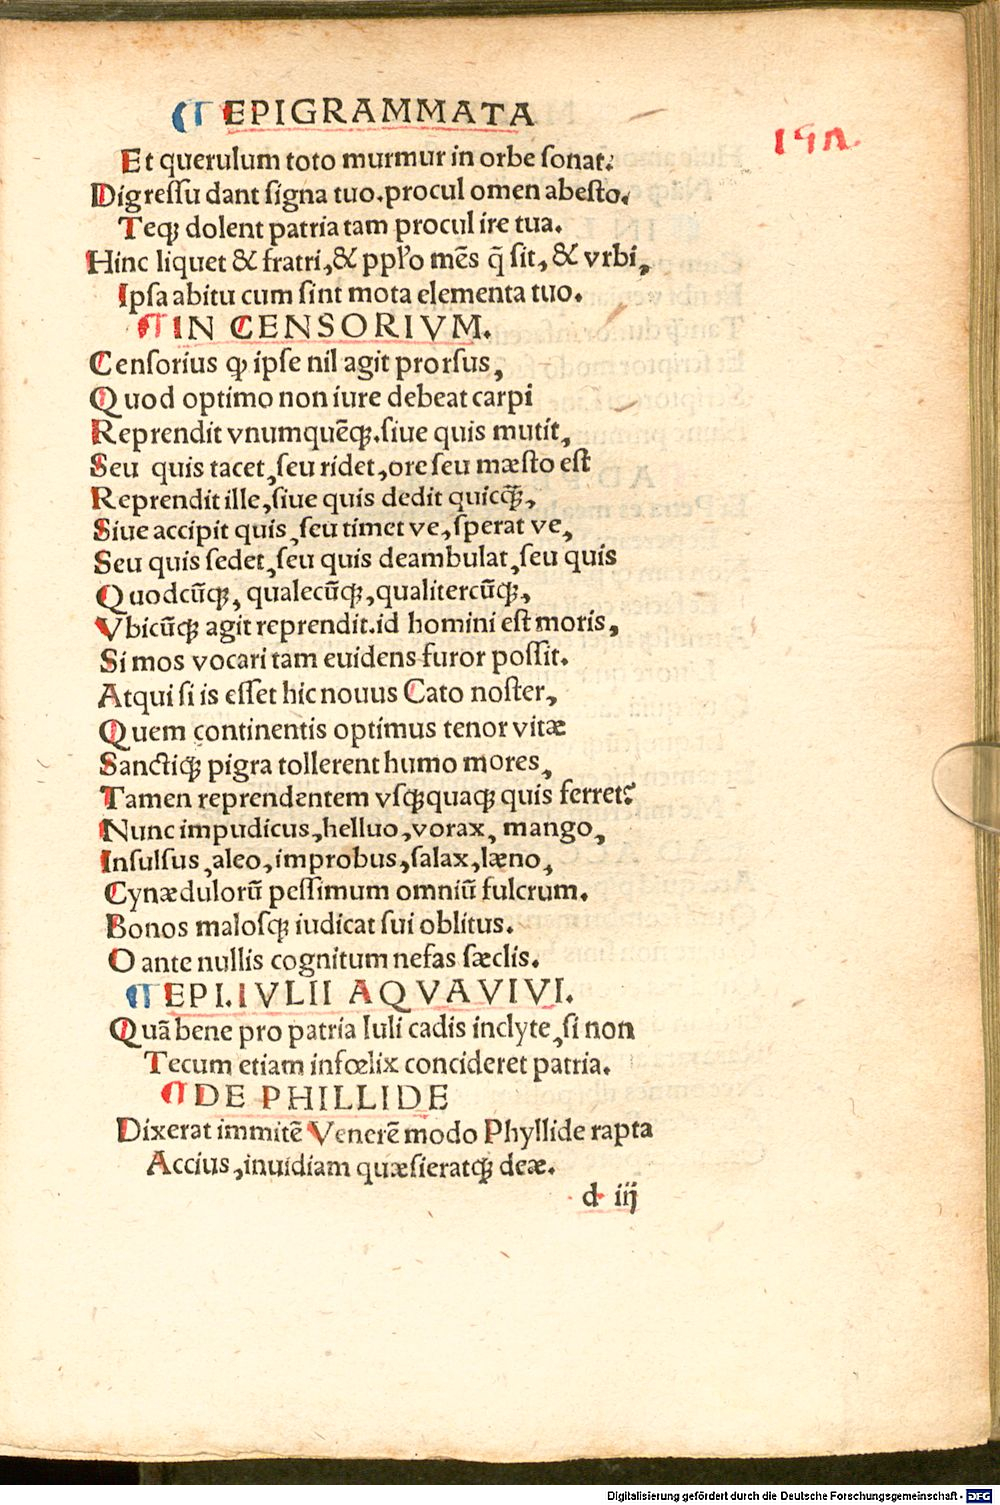 ¶ EPIGRAMMATA
Et querulum toto murmur in orbe ſonat:
Digreſſu dant ſigna tuo.procul omen abeſto.
Teqꝫ dolent patria tam procul ire tua.
Hinc liquet & fratri,& ppl'o mēs q̄ ſit, & vrbi,
Ipſa abitu cum ſint mota elementa tuo.
¶ IN CENSORIVM.
Cenſorius ꝙ ipſe nil agit prorſus,
Quod optimo non iure debeat carpi
Reprendit vnumquēqꝫ.ſiue quis mutit,
Seu quis tacet,ſeu ridet,ore ſeu mæſto eſt
Reprendit ille,ſiue quis dedit quicq̃ꝫ,
Siue accipit quis,ſeu timet ve,ſperat ve,
Seu quis ſedet,ſeu quis deambulat,ſeu quis
Quodcūqꝫ, qualecūqꝫ,qualitercūqꝫ,
Vbicūqꝫ agit reprendit.id homini eſt moris,
Si mos vocari tam euidens furor poſſit.
Atqui ſi is eſſet hic nouus Cato noſter,
Quem continentis optimus tenor vitæ
Sanctiqꝫ pigra tollerent humo mores,
Tamen reprendentem vſqꝫquaqꝫ quis ferret?
Nunc impudicus,helluo,vorax, mango,
Inſulſus,aleo,improbus,ſalax,læno,
Cynædulorū peſſimum omniū fulcrum.
Bonos maloſqꝫ iudicat ſui oblitus.
O ante nullis cognitum nefas ſæclis.
¶ EPI.IVLII AQVAVIVI.
Quā bene pro patria Iuli cadis inclyte,ſi non
Tecum etiam infœlix concideret patria.
¶ DE PHILLIDE
Dixerat immitē Venerē modo Phyllide rapta
Accius,inuidiam quæſieratqꝫ deæ.
d iij
Digitalisierung gefördert durch die Deutsche Forschungsgemeinschaft - DFG